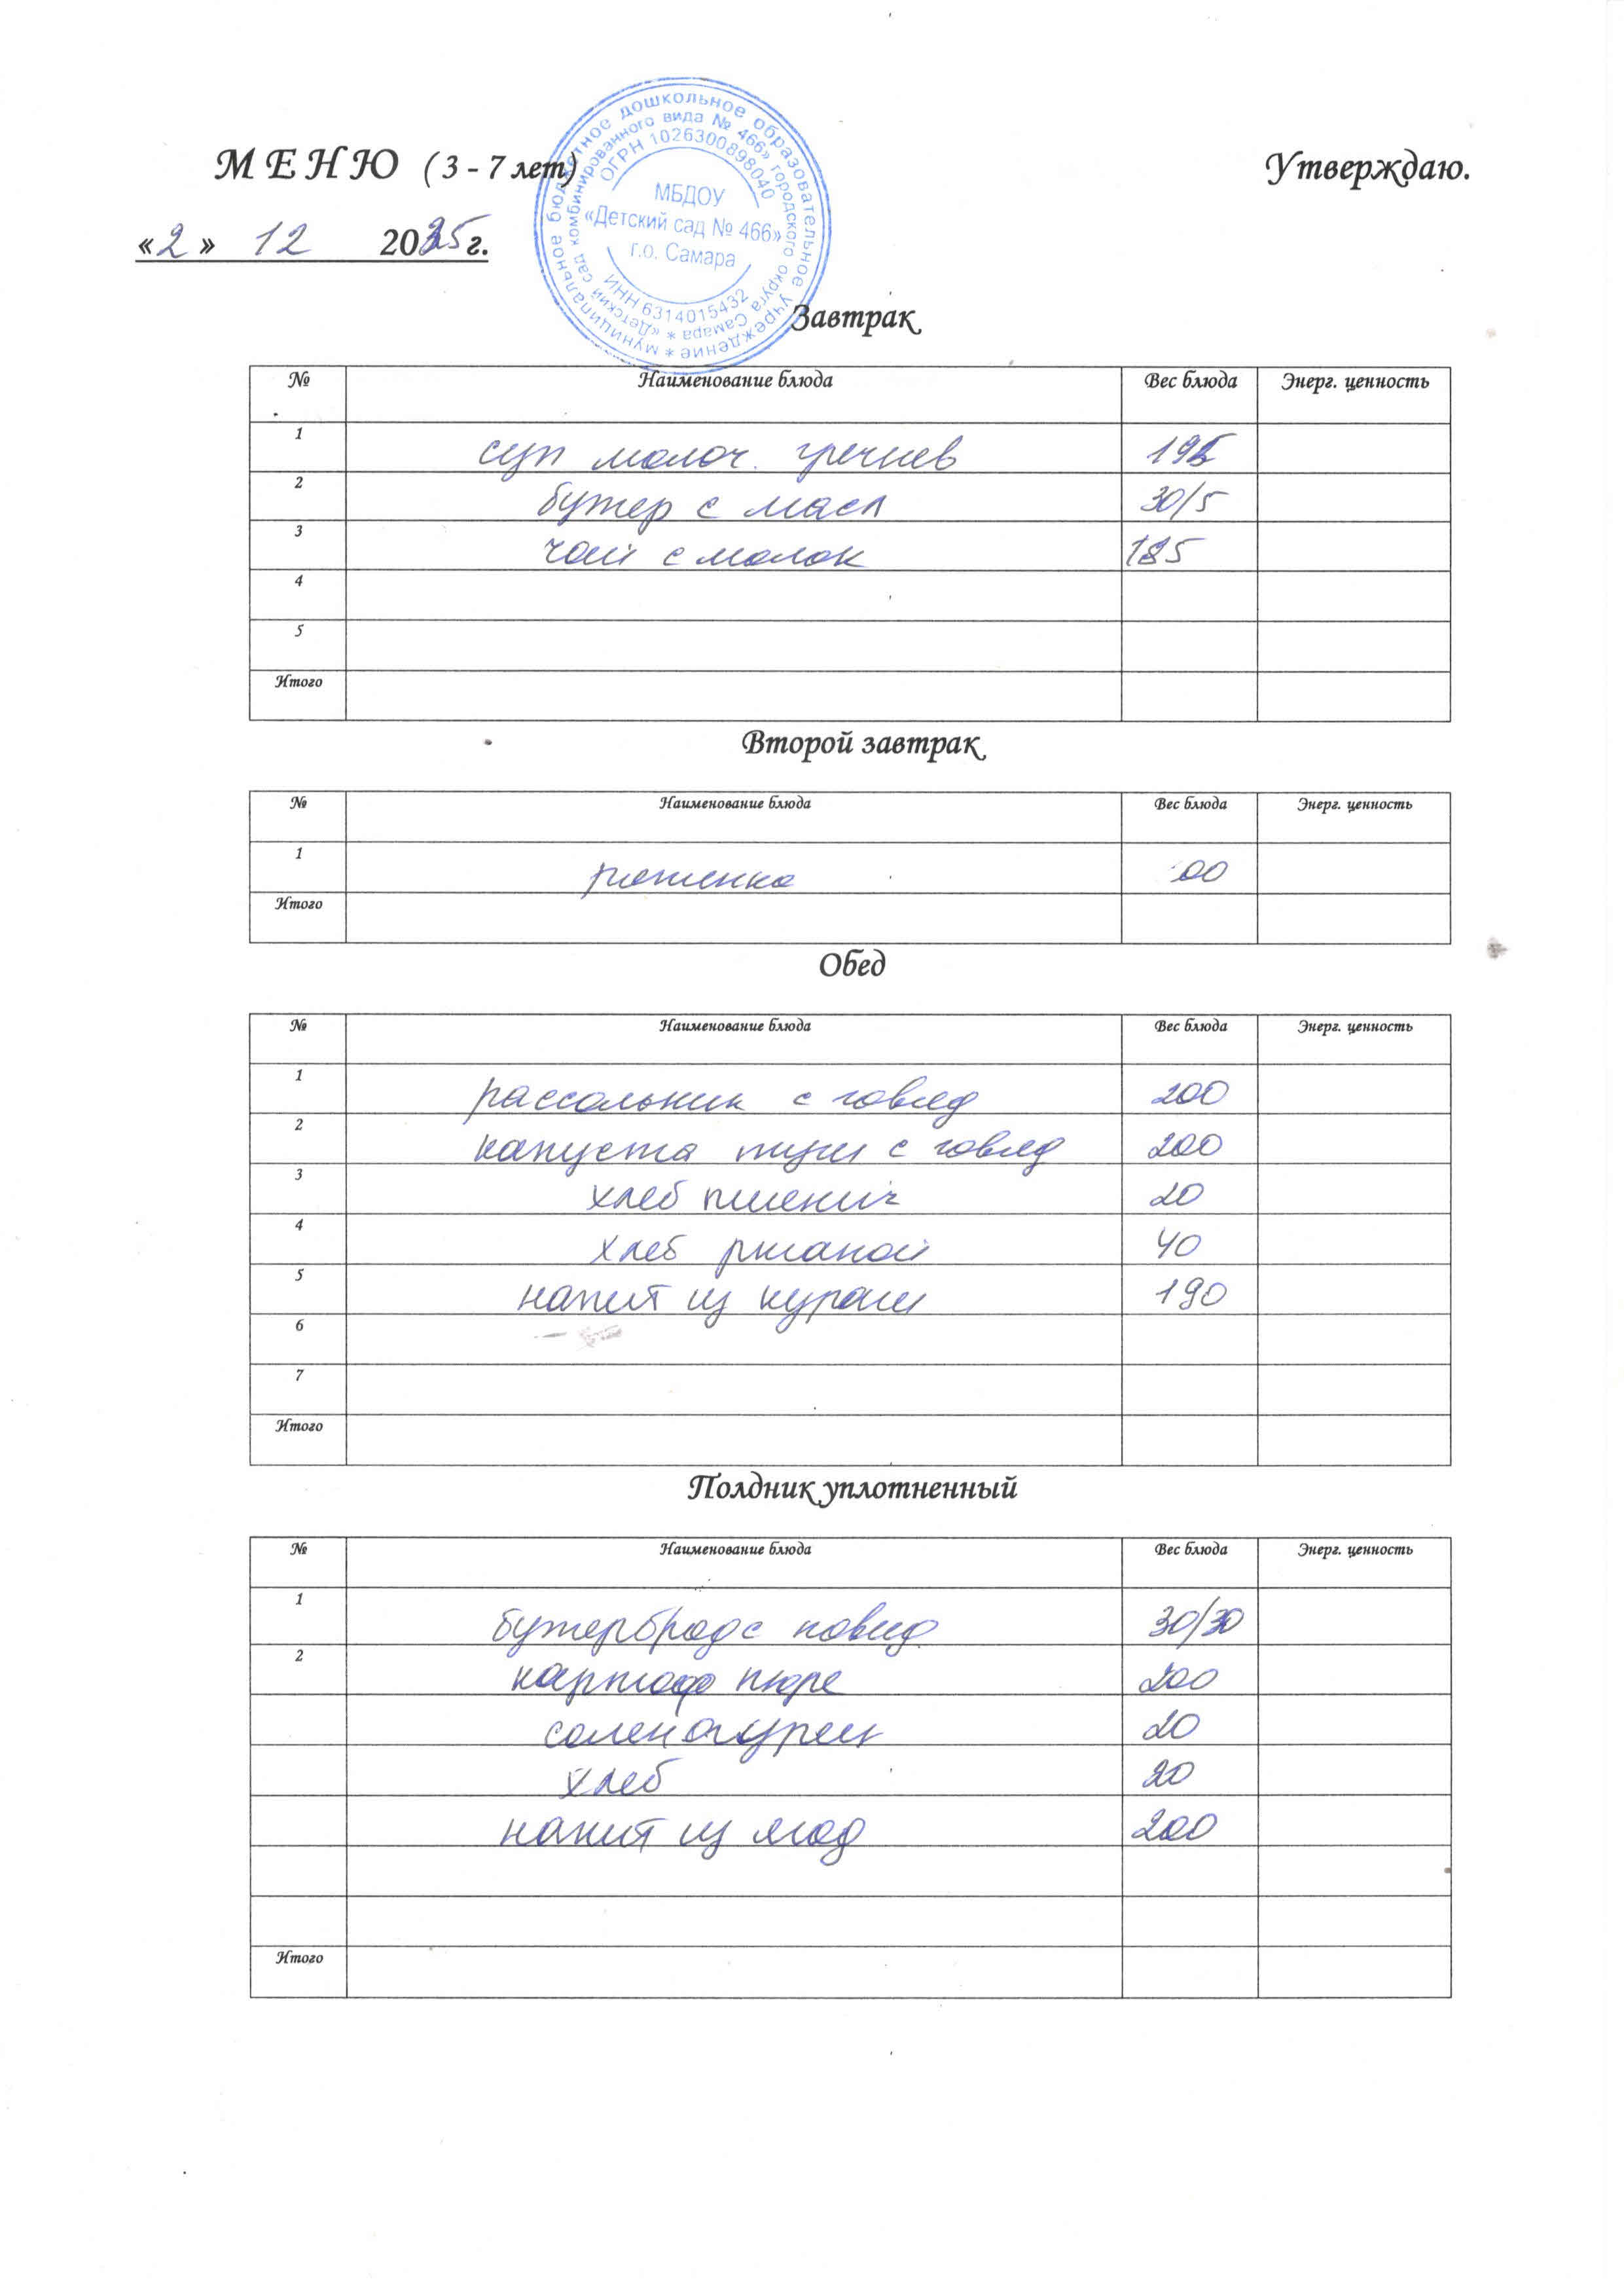 МЕНЮ (3 - 7 лет) Утверждаю.
муниципальное бюджетное дошкольное образовательное учреждение *
«Детский сад комбинированного вида № 466» городского округа Самара *
ОГРН 1026300898040
МБДОУ
«Детский сад № 466»
г.о. Самара
ИНН 6314015432
«2» 12 2025г.
Завтрак
№ Наименование блюда Вес блюда Энерг. ценность
1 суп молоч. гречнев
2 бутер с масл 30/5
3 чай с молок 185
4
5
Итого
Второй завтрак
№ Наименование блюда Вес блюда Энерг. ценность
1 ряженка
Итого
Обед
№ Наименование блюда Вес блюда Энерг. ценность
1 рассольник с говяд 200
2 капуста туш с говяд 200
3 хлеб пшенич 20
4 хлеб ржаной 40
5 напит из кураги 190
6
7
Итого
Полдник уплотненный
№ Наименование блюда Вес блюда Энерг. ценность
1 бутерброд с повид 30/30
2 картоф пюре 200
солен огурец 20
хлеб 20
напит из ягод 200
Итого